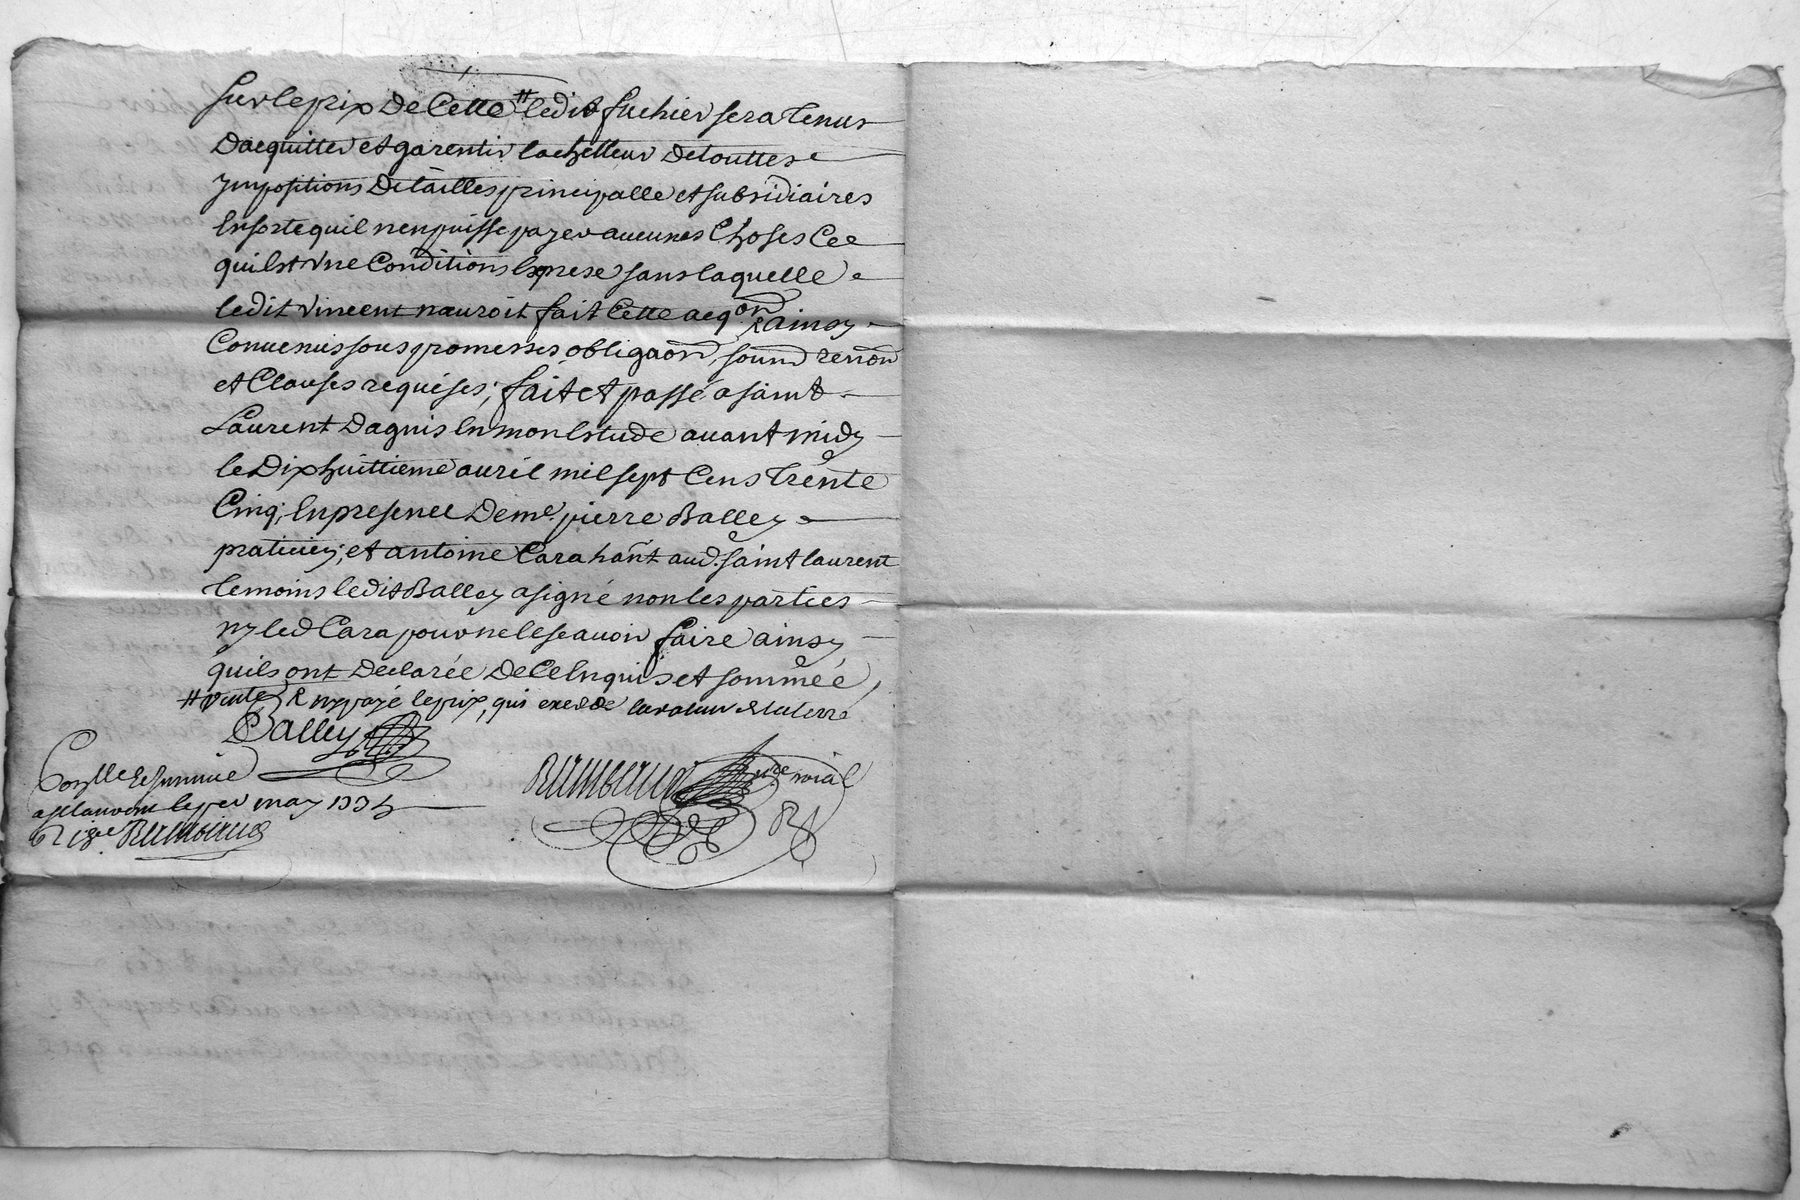 Sur le prix De Cette # ledit fuchier sera Tenus
Dacquitter et garentir lachetteur De touttes
Impositions De tailles principalle et subsidiaires
En sorte quil nen puisse payer aucunes Choses Cee
qui Est Vne Conditions Exprese sans laquelle
ledit Vincent nauroit fait Cette acqon R ainsy
Conuenus sous promesses, obligaon, soumd renon
et Clauses requises; fait et passé a saint
Laurent Dagnis En mon Estude auant midy
le Dix huittieme auril mil sept Cens Trente
Cinq, En presence De me. pierre Balley
praticien, et antoine Cara hant aud. saint laurent
Temoins ledit Balley a signé non les parties
ny led Cara pour ne le scauoir faire ainsy
quils ont Declarée De Ce Enquis et sommée,
# vente R ny payé le prix, qui excede la valeur de la terre
Balley
Conlle
a st laurent le per may 1735